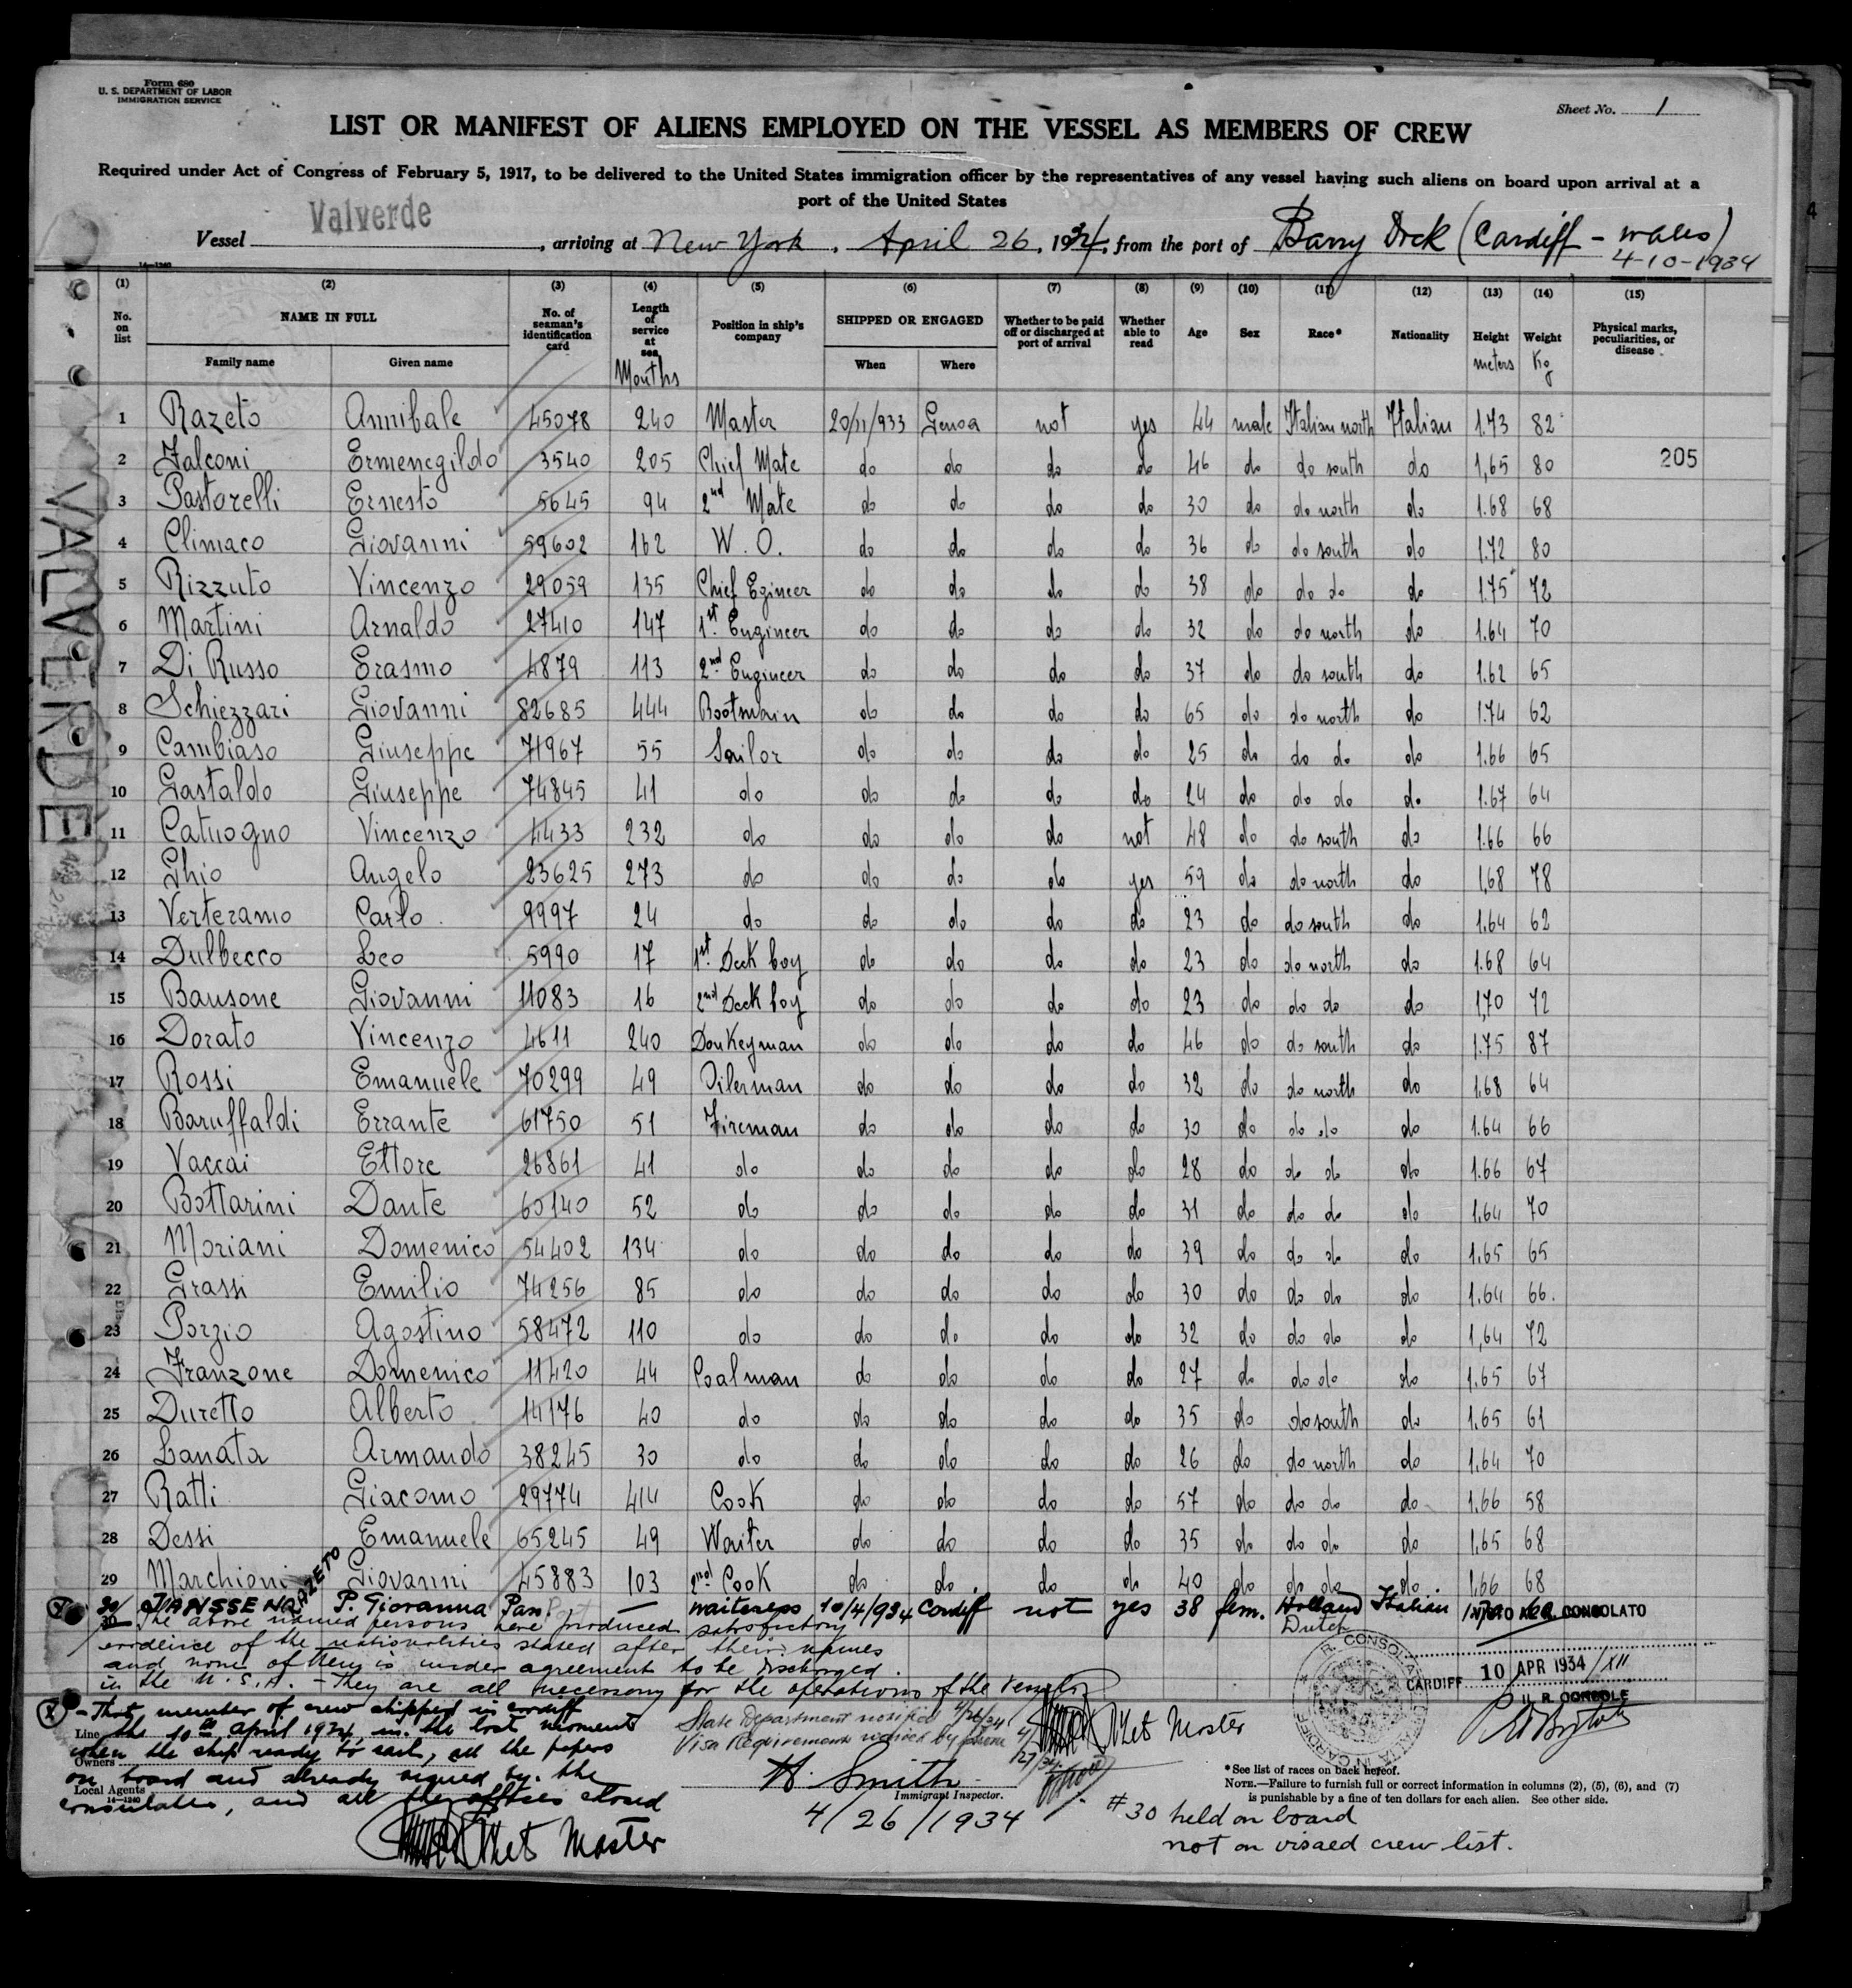 Form 680
U. S. DEPARTMENT OF LABOR
IMMIGRATION SERVICE
Sheet No. 1
LIST OR MANIFEST OF ALIENS EMPLOYED ON THE VESSEL AS MEMBERS OF CREW
Required under Act of Congress of February 5, 1917, to be delivered to the United States immigration officer by the representatives of any vessel having such aliens on board upon arrival at a
port of the United States
Vessel Valverde, arriving at New York, April 26, 1934, from the port of Barry Dock (Cardiff - Wales)
4-10-1934
14-1240
(1) (2) (3) (4) (5) (6) (7) (8) (9) (10) (11) (12) (13) (14) (15)
No. on list NAME IN FULL Family name Given name No. of seaman's identification card Length of service at sea Months Position in ship's company SHIPPED OR ENGAGED When Where Whether to be paid off or discharged at port of arrival Whether able to read Age Sex Race* Nationality Height meters Weight Kg Physical marks, peculiarities, or disease
1 Razeto Annibale 45078 240 Master 20/11/933 Genoa not yes 44 male Italian north Italian 1.73 82
2 Falconi Ermenegildo 3540 205 Chief Mate do do do do 46 do do south do 1,65 80 205
3 Pastorelli Ernesto 5645 94 2nd Mate do do do do 30 do do north do 1.68 68
4 Climaco Giovanni 59602 162 W. O. do do do do 36 do do south do 1.72 80
5 Rizzuto Vincenzo 29059 135 Chief Egineer do do do do 38 do do do do 1.75 72
6 Martini Arnaldo 27410 147 1st. Engineer do do do do 32 do do north do 1.64 70
7 Di Russo Erasmo 4879 113 2nd Engineer do do do do 37 do do south do 1.62 65
8 Schiezzari Giovanni 82685 444 Bootmain do do do do 65 do do north do 1.74 62
9 Cambiaso Giuseppe 71967 55 Sailor do do do do 25 do do do do 1.66 65
10 Gastaldo Giuseppe 74845 41 do do do do do 24 do do do do 1.67 64
11 Catuogno Vincenzo 4433 232 do do do do not 48 do do south do 1.66 66
12 Ghio Angelo 23625 273 do do do do yes 59 do do north do 1,68 78
13 Verteramo Carlo 9997 24 do do do do do 23 do do south do 1,64 62
14 Dulbecco Leo 5990 17 1st. Deck boy do do do do 23 do do north do 1.68 64
15 Bausone Giovanni 11083 16 2nd Deck boy do do do do 23 do do do do 1,70 72
16 Dorato Vincenzo 4611 240 Donkeyman do do do do 46 do do south do 1.75 87
17 Rossi Emanuele 70299 49 Oilerman do do do do 32 do do north do 1.68 64
18 Baruffaldi Errante 61750 51 Fireman do do do do 30 do do do do 1.64 66
19 Vaccai Ettore 26861 41 do do do do do 28 do do do do 1.66 67
20 Bottarini Dante 60140 52 do do do do do 31 do do do do 1.64 70
21 Moriani Domenico 54402 134 do do do do do 39 do do do do 1.65 65
22 Grassi Emilio 74256 85 do do do do do 30 do do do do 1.64 66.
23 Porzio Agostino 58472 110 do do do do do 32 do do do do 1,64 72
24 Franzone Domenico 11420 44 Coalman do do do do 27 do do do do 1.65 67
25 Duretto Alberto 14176 40 do do do do do 35 do do south do 1.65 61
26 Lanata Armando 38245 30 do do do do do 26 do do north do 1,64 70
27 Ratti Giacomo 29774 414 Cook do do do do 57 do do do do 1.66 58
28 Dessi Emanuele 65245 49 Waiter do do do do 35 do do do do 1,65 68
29 Marchioni Giovanni 45883 103 2nd Cook do do do do 40 do do do do 1,66 68
30 JANSSEN RAZETO P. Giovanna waiteress 10/4/934 Cardiff not yes 38 fem. Holland Dutch Italian
30 The above named persons have produced satisfactory
evidence of the nationalities stated after their names
and none of them is under agreement to be discharged
in the U.S.A. - They are all necessary for the operations of the vessel
R. CONSOLATO
CARDIFF 10 APR 1934/XII
IL R. CONSOLE
X - That member of crew shipped in Cardiff
Line the 10th April 1934 in the last moment
when the ship ready to sail, all the papers
Owners
on board and already signed by the
Local Agents
consulates, and all the offices closed
14-1240
Master
State Department notified 4/26/34
Visa Requirements waived by phone 4/27/34
Master
H. Smith
Immigrant Inspector.
4/26/1934
*See list of races on back hereof.
NOTE.—Failure to furnish full or correct information in columns (2), (5), (6), and (7)
is punishable by a fine of ten dollars for each alien. See other side.
#30 held on board
not on visaed crew list.
VALVERDE